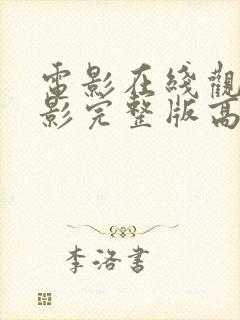 電影在綫觀
影完整版高
李洛書